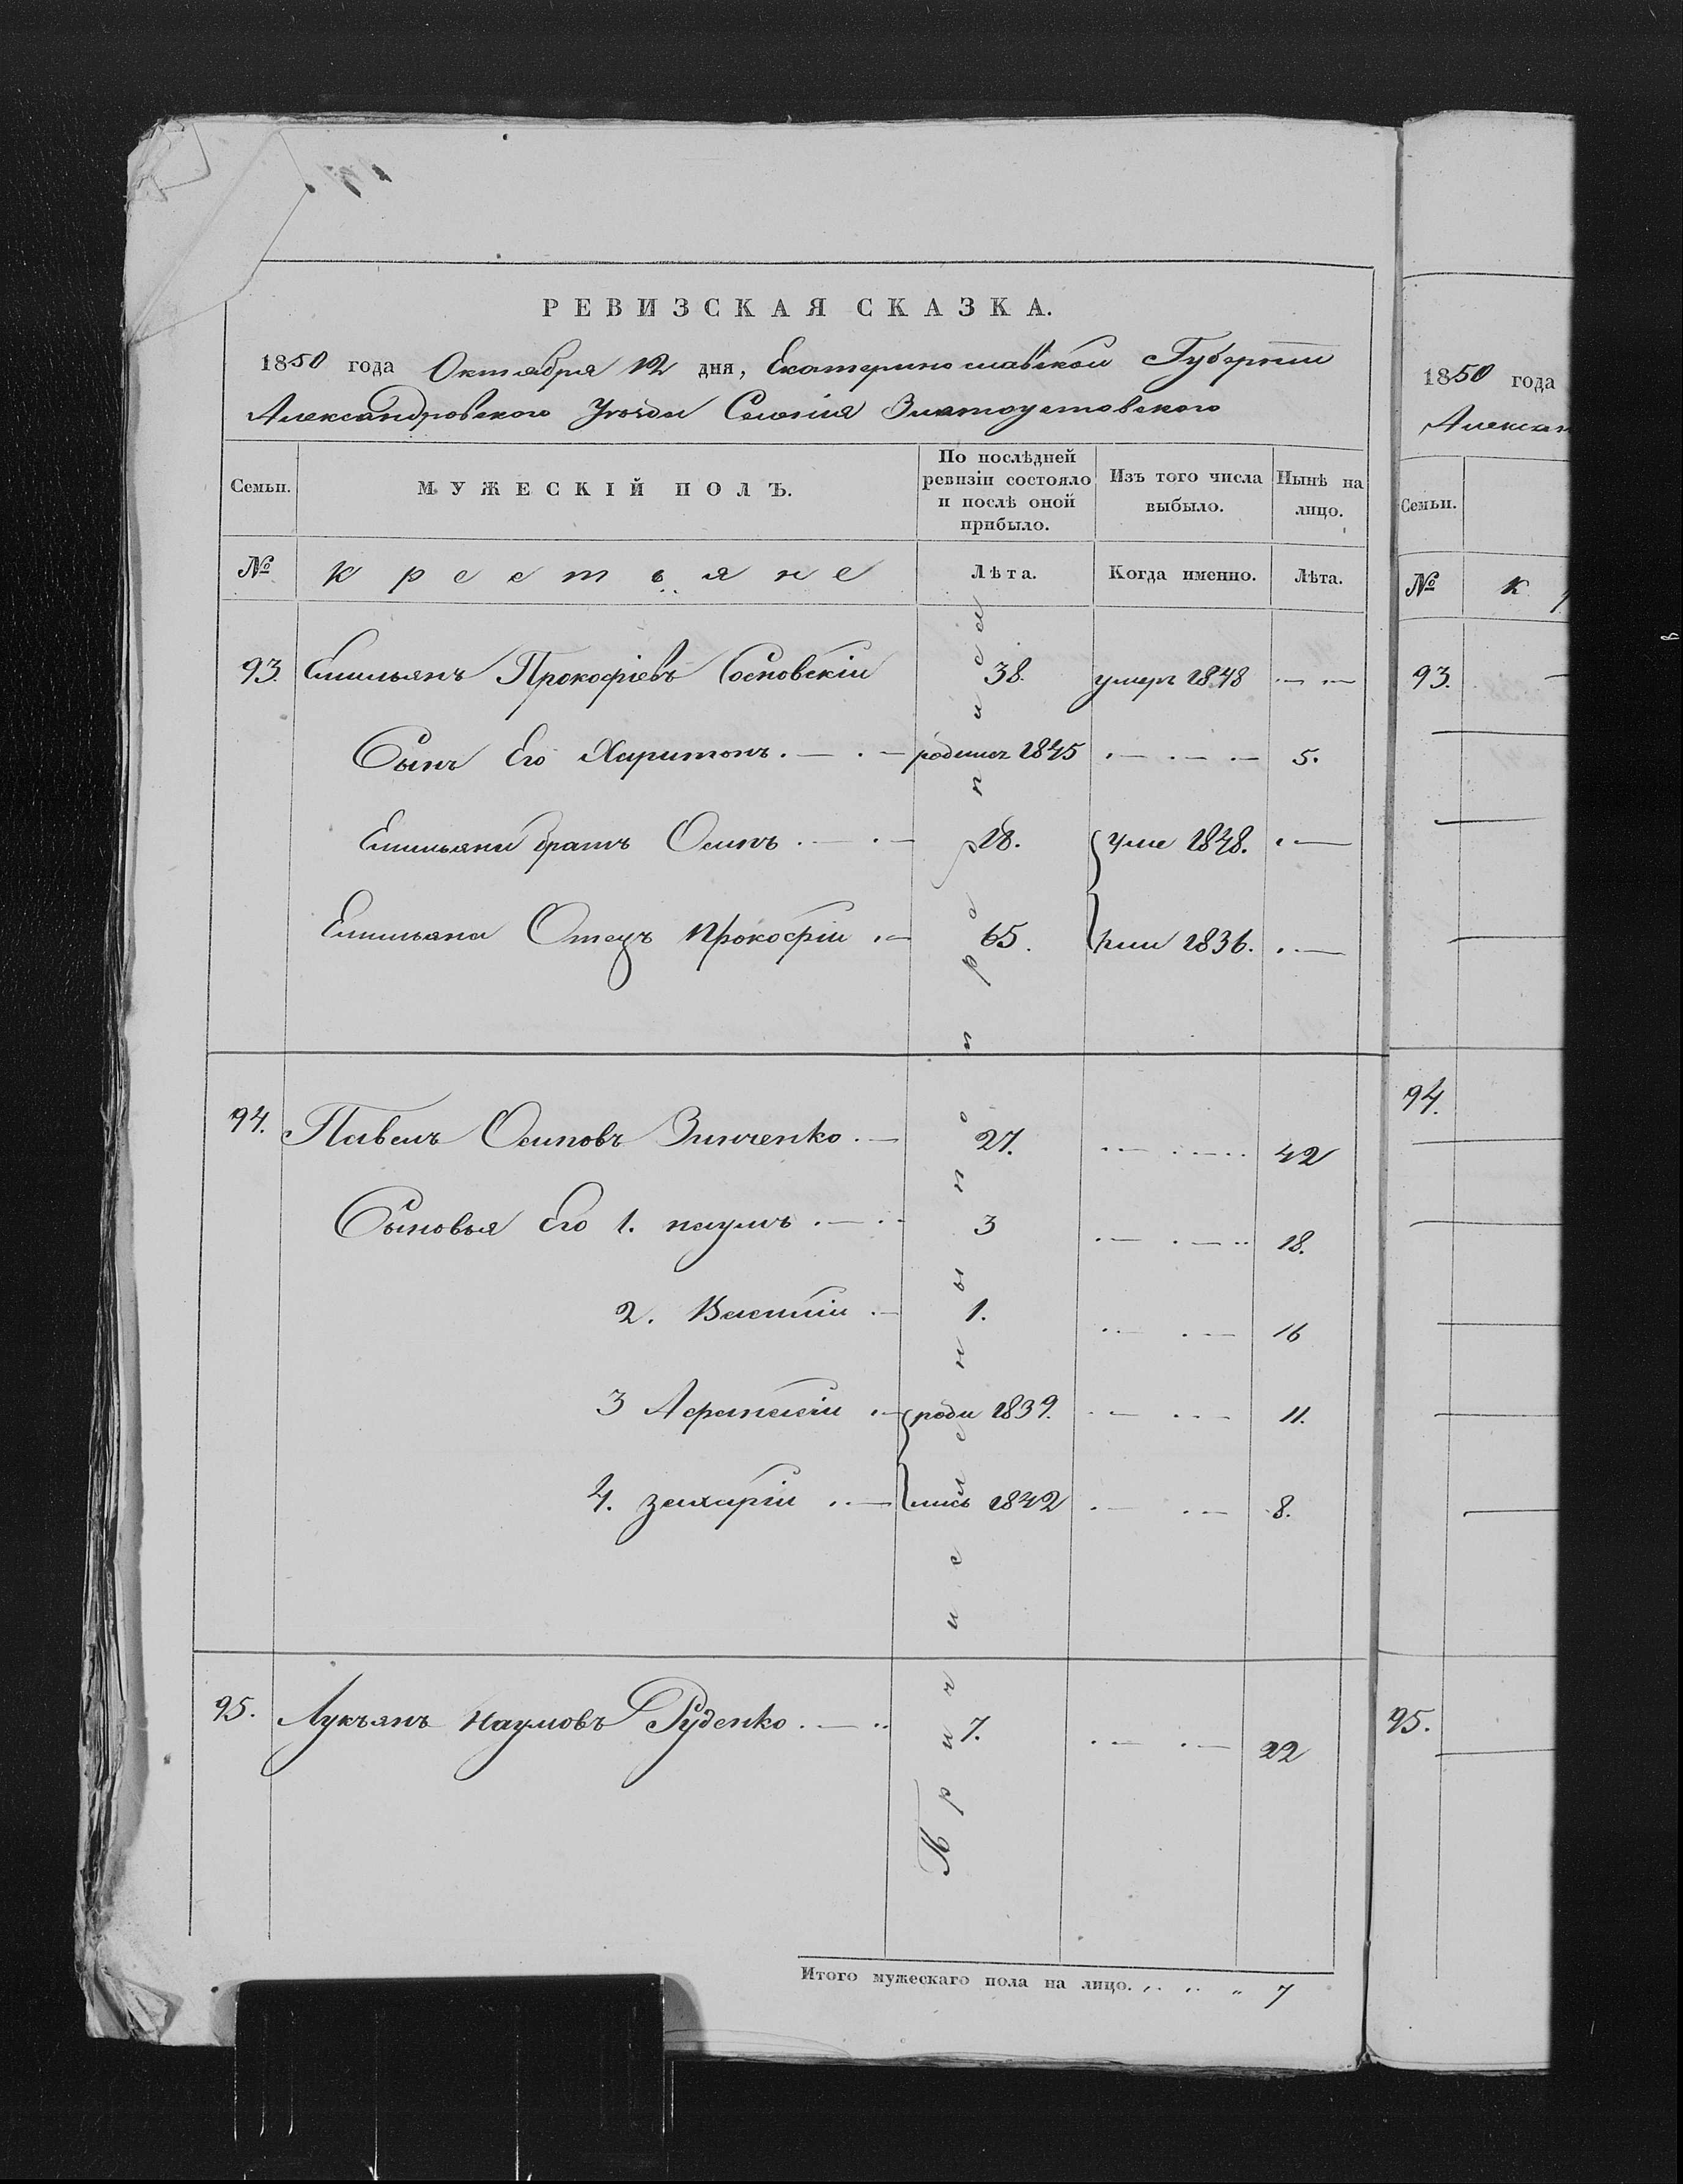 РЕВИЗСКАЯ СКАЗКА.
1850 года Октября 12 дня, Екатеринославской Губернии
Александровского Уѣзда Селенія Златоустовского
Семьи.
МУЖЕСКІЙ ПОЛЪ.
По послѣдней ревизіи состояло и послѣ оной прибыло.
Изъ того числа выбыло.
Нынѣ на лицо.
№ Крестьяне Лѣта. Когда именно. Лѣта.
93. Емильянъ Прокофіевъ Сосновскій 38. умеръ 1848
Сынъ Его Харитонъ родился 1845 5.
Емильяна братъ Осипъ 18. уме 1848.
Емильяна Отецъ Прокофій 65. рли 1836.
94. Павелъ Осиповъ Зинченко 27. 42
Сыновья Его 1. наумъ 3 18.
2. Василій 1. 16
3 Афанасій роди 1839. 11.
4. захарій лись 1842 8.
95. Лукъянъ Наумовъ Руденко 7. 22
Итого мужескаго пола на лицо. 7
1850 года
Алексан
Семьи.
№ К
93.
94.
95.